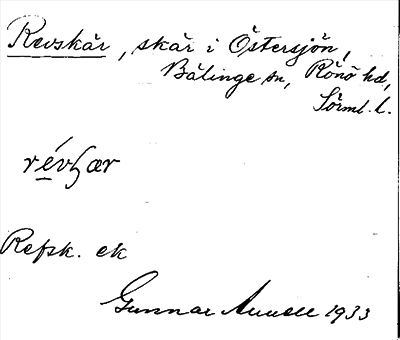 Revskär, skär i Östersjön,
Bälinge sn, Rönö hd,
Sörml. l.
révꞕær
Refsk. ek
Gunnar 1933